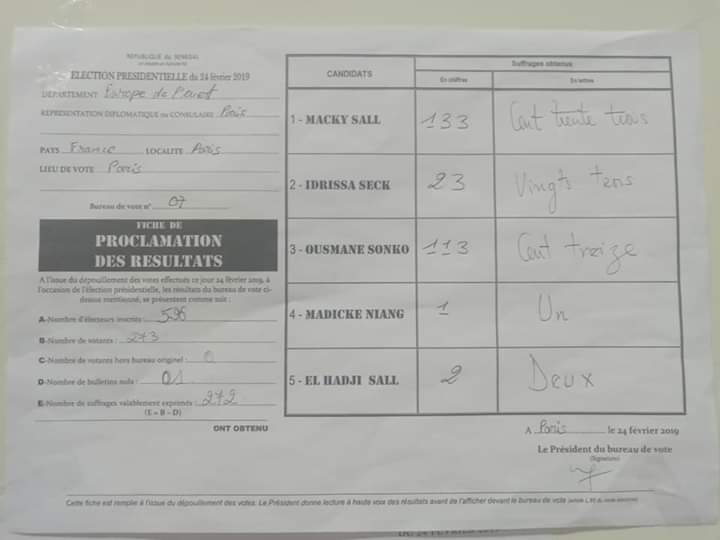 REPUBLIQUE du SENEGAL
ELECTION PRESIDENTIELLE du 24 février 2019
DÉPARTEMENT Europe de l'ouest
REPRESENTATION DIPLOMATIQUE ou CONSULAIRE Paris
PAYS France LOCALITE Paris
LIEU DE VOTE Paris
Bureau de vote n° 07
FICHE DE
PROCLAMATION
DES RESULTATS
A l'issue du dépouillement des votes effectués ce jour 24 février 2019, à
l'occasion de l'élection présidentielle, les résultats du bureau de vote ci-
dessus mentionné, se présentent comme suit :
A-Nombre d'électeurs inscrits : 596
B-Nombre de votants : 273
C-Nombre de votants hors bureau originel : 0
D-Nombre de bulletins nuls : 01
E-Nombre de suffrages valablement exprimés : 272
(E = B - D)
ONT OBTENU
CANDIDATS
Suffrages obtenus
En chiffres En lettre
1 - MACKY SALL 133 Cent trente trois
2 - IDRISSA SECK 23 Vingts trois
3 - OUSMANE SONKO 113 Cent treize
4 - MADICKE NIANG 1 Un
5 - EL HADJI SALL 2 Deux
A Paris le 24 février 2019
Le Président du bureau de vote
(Signature)
Cette fiche est remplie à l'issue du dépouillement des votes. Le Président donne lecture à haute voix des résultats avant de l'afficher devant le bureau de vote